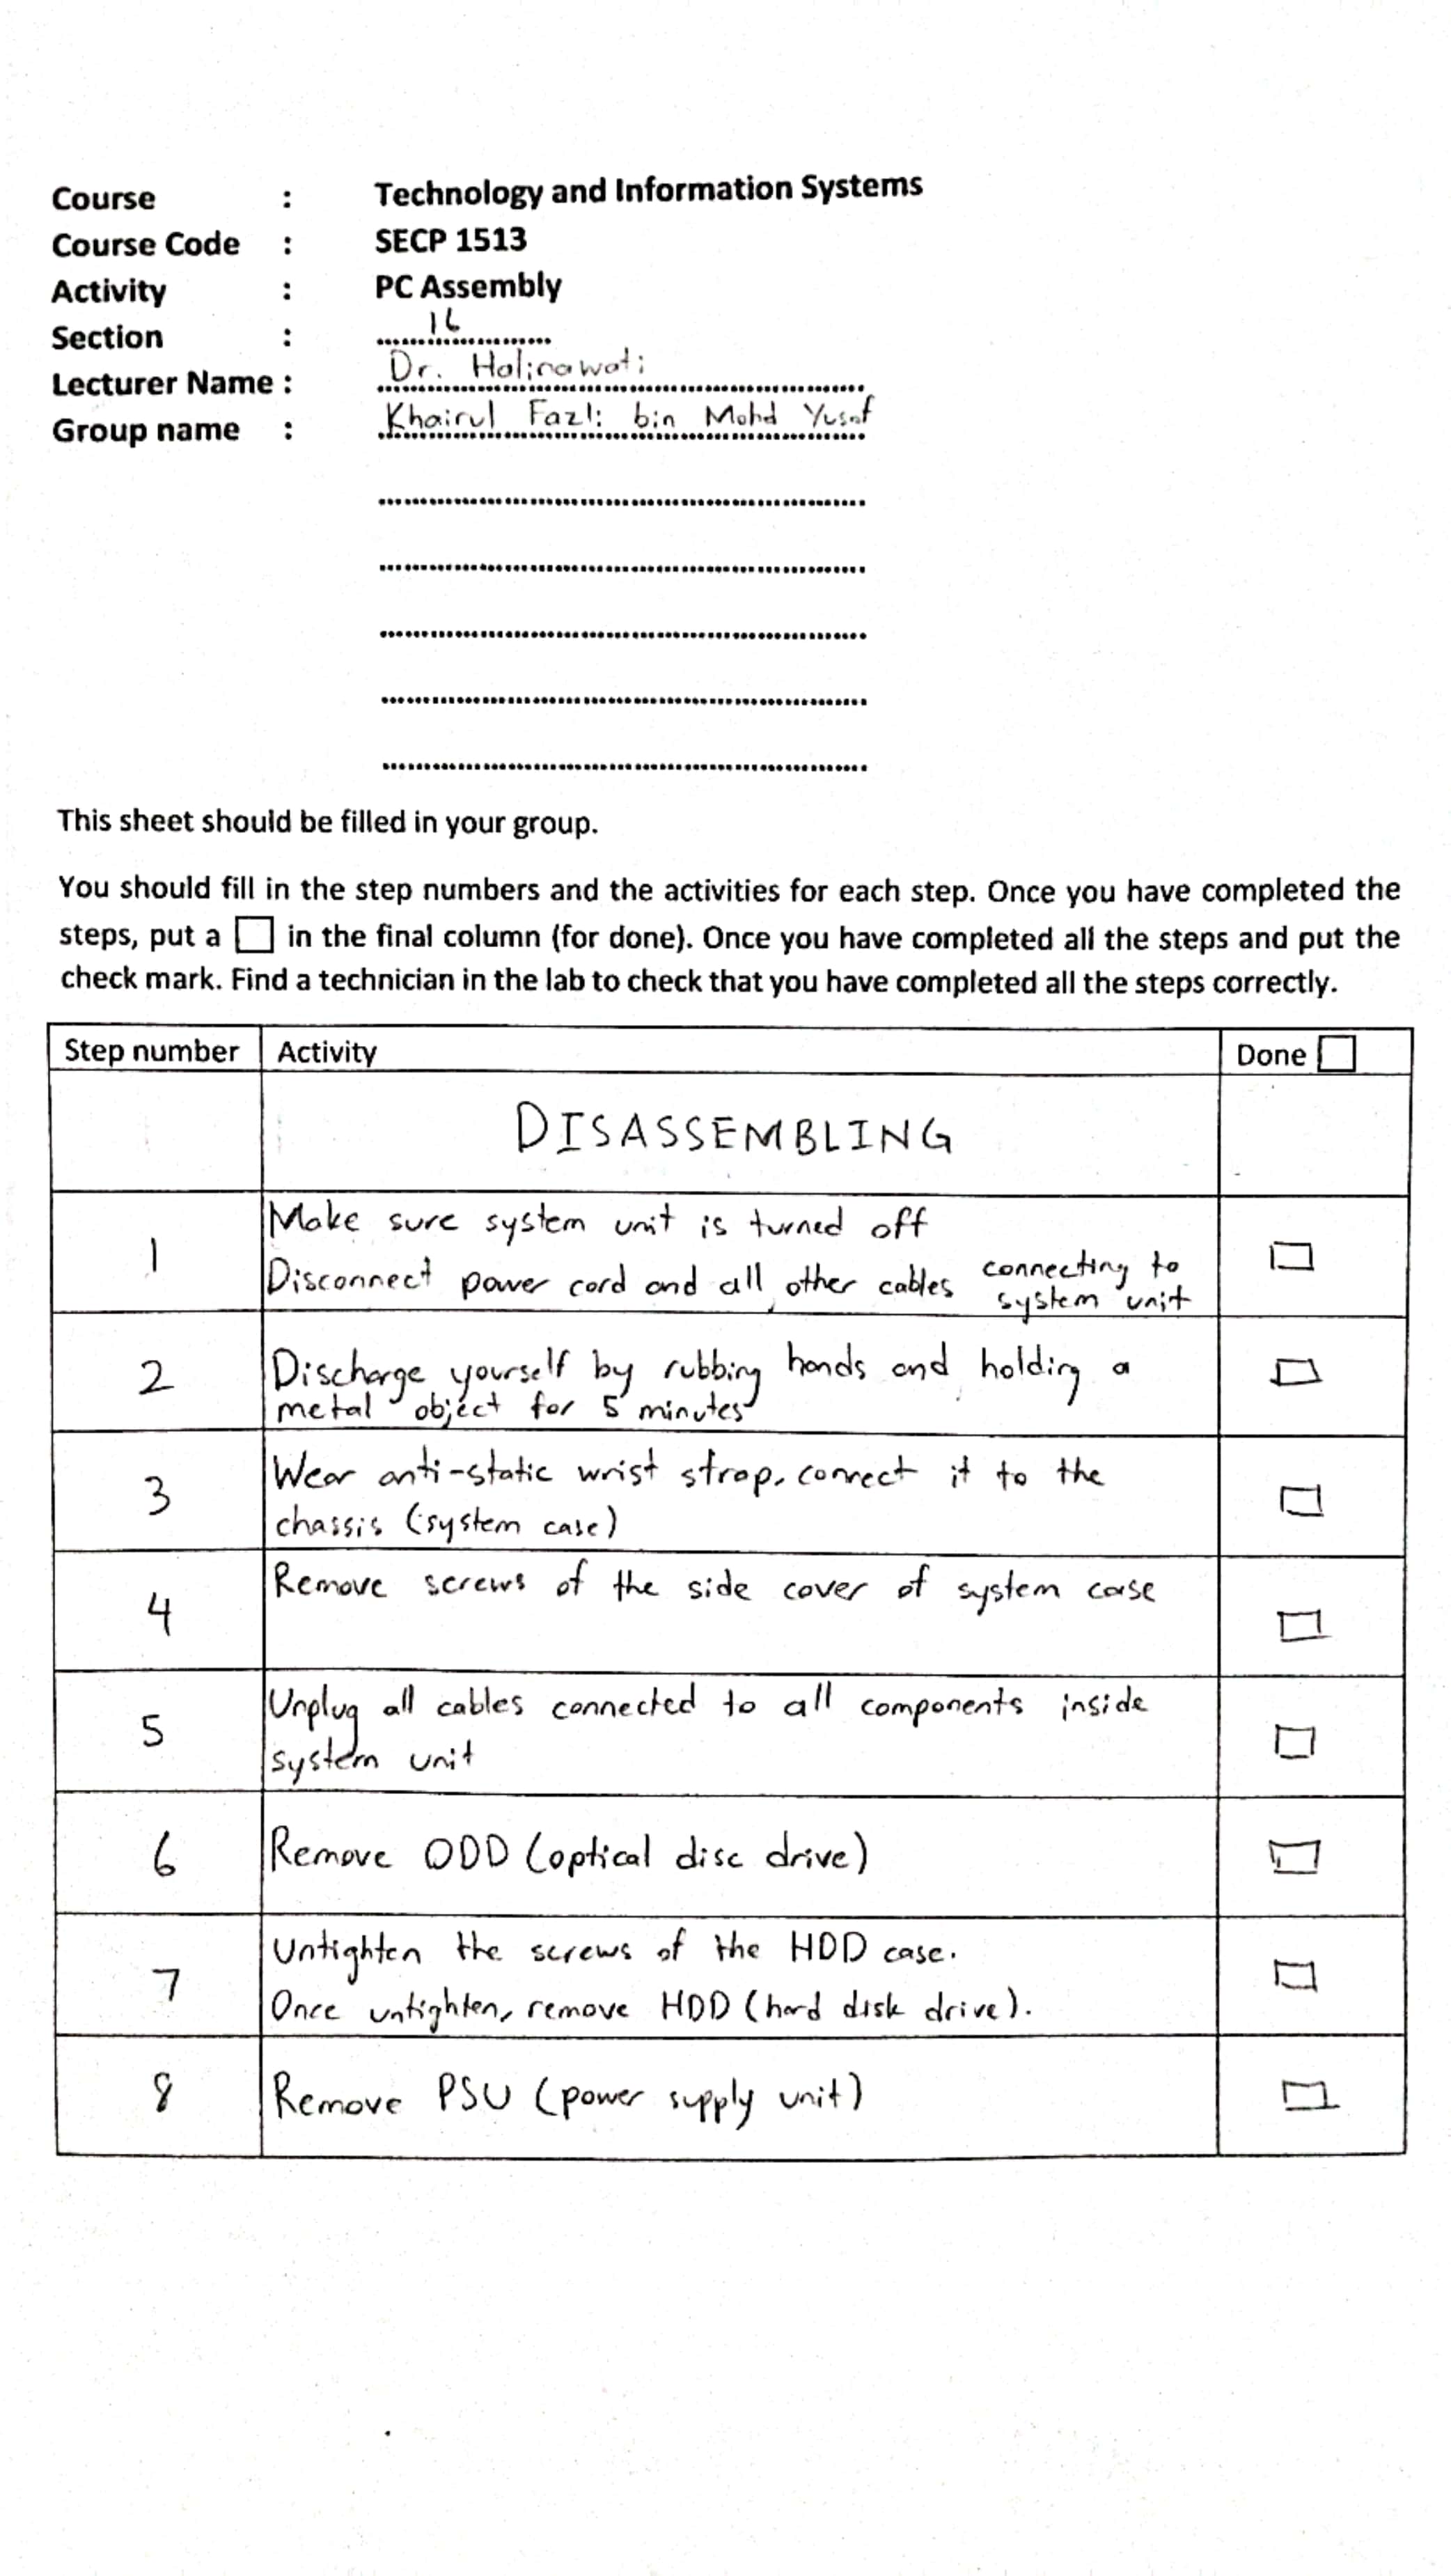 Course : Technology and Information Systems
Course Code : SECP 1513
Activity : PC Assembly
Section : 16
Lecturer Name : Dr. Halinawati
Group name : Khairul Fazli bin Mohd Yusof
This sheet should be filled in your group.
You should fill in the step numbers and the activities for each step. Once you have completed the
steps, put a ☐ in the final column (for done). Once you have completed all the steps and put the
check mark. Find a technician in the lab to check that you have completed all the steps correctly.
Step number Activity Done ☐
DISASSEMBLING
1 Make sure system unit is turned off
Disconnect power cord and all other cables connecting to
system unit ☐
2 Discharge yourself by rubbing hands and holding a
metal object for 5 minutes ☐
3 Wear anti-static wrist strap, connect it to the
chassis (system case) ☐
4 Remove screws of the side cover of system case ☐
5 Unplug all cables connected to all components inside
system unit ☐
6 Remove ODD (optical disc drive) ☐
7 Untighten the screws of the HDD case.
Once untighten, remove HDD (hard disk drive). ☐
8 Remove PSU (power supply unit) ☐